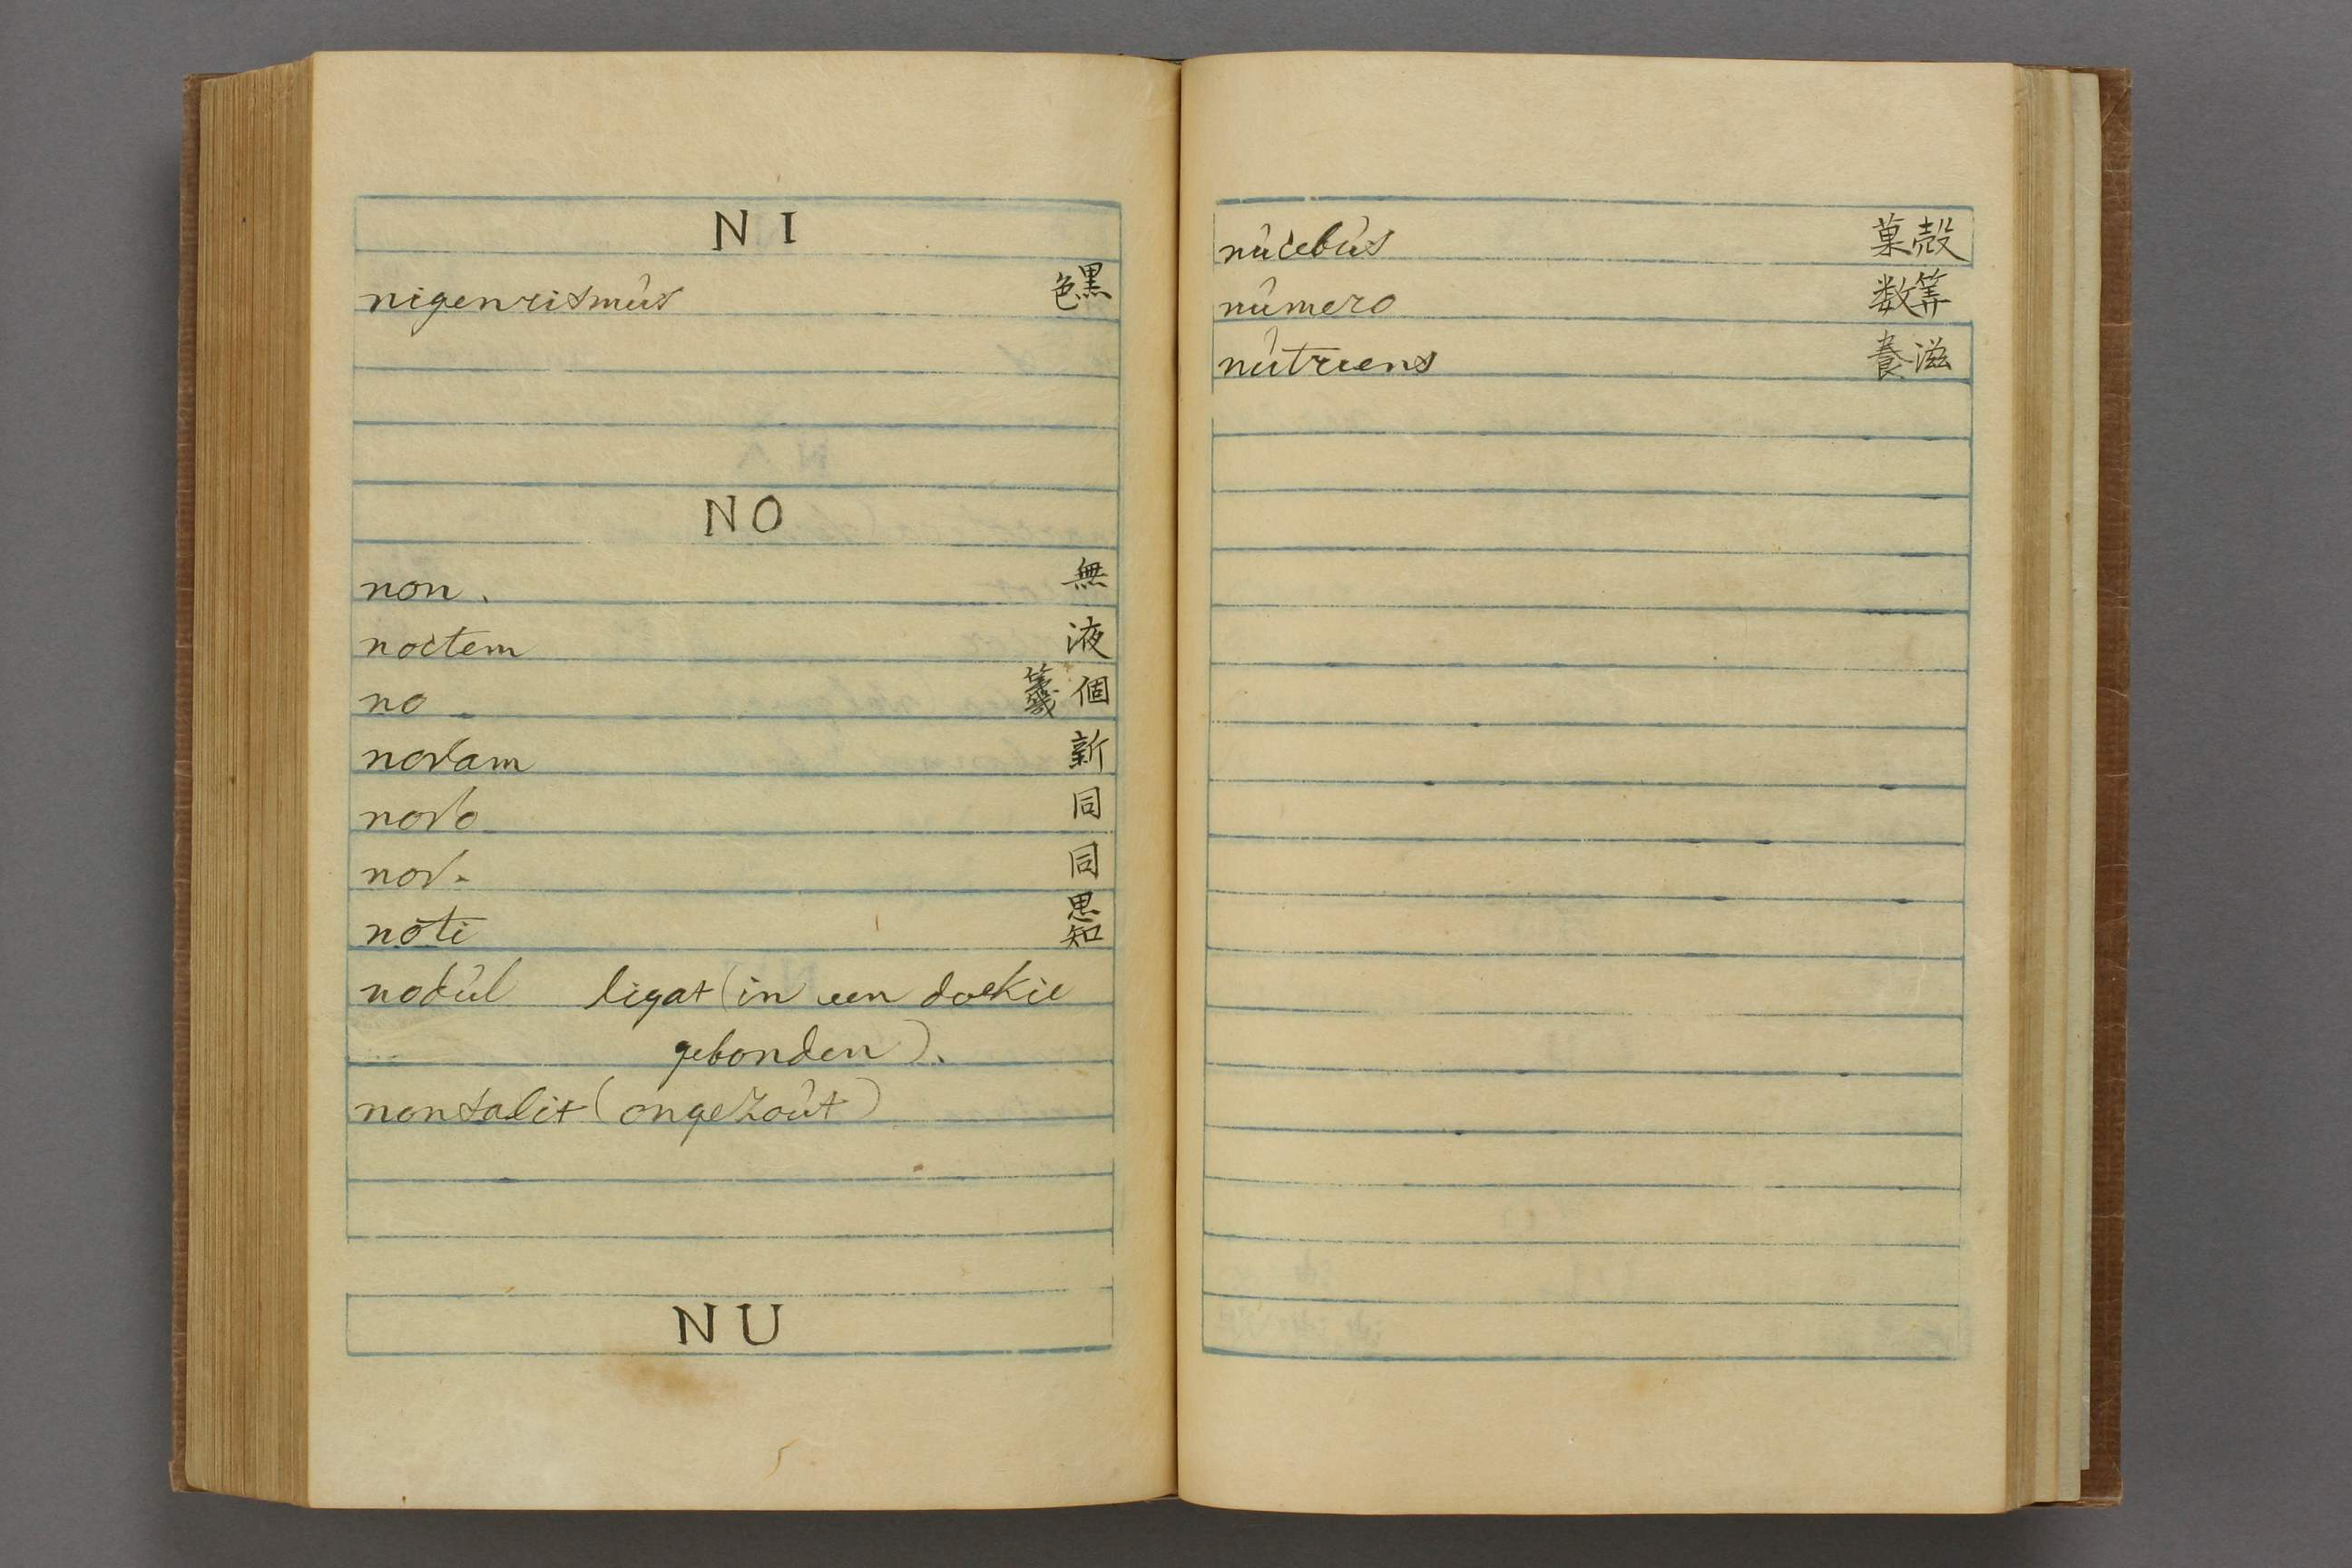 NI
nigenrismûs 黒色
NO
non. 無
noctem 液
no 個 箋
novam 新
novo 同
nov. 同
nōti 思知
nodûl ligat (in een doekie
gebonden).
nonsalit (ongezoût)
NU
nûcebûs 殻菓
nûmero 筭数
nûtriens 滋養